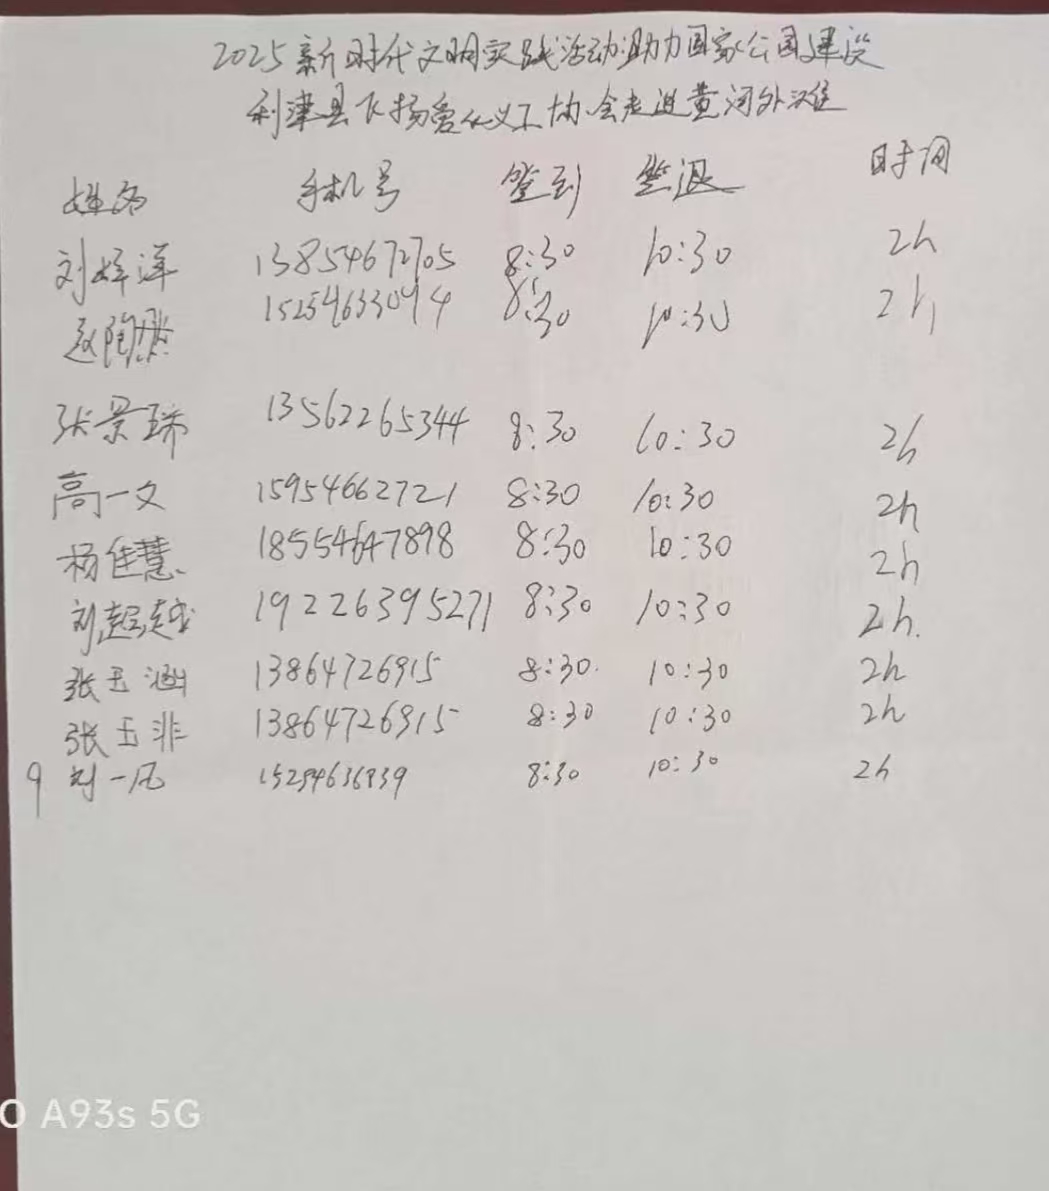 2025新时代文明实践活动助力国家公园建设
利津县飞扬爱心义工协会走进黄河外滩
姓名 手机号 签到 签退 时间
刘婷洋 13854672705 8:30 10:30 2h
赵陶然 15254633094 8:30 10:30 2h
张景瑞 13562265344 8:30 10:30 2h
高一文 15954662721 8:30 10:30 2h
杨佳慧 18554647898 8:30 10:30 2h
刘超越 19226395271 8:30 10:30 2h.
张玉涵 13864726915 8:30 10:30 2h
张玉非 13864726915 8:30 10:30 2h
9 刘一凡 15254636939 8:30 10:30 2h
O A93s 5G